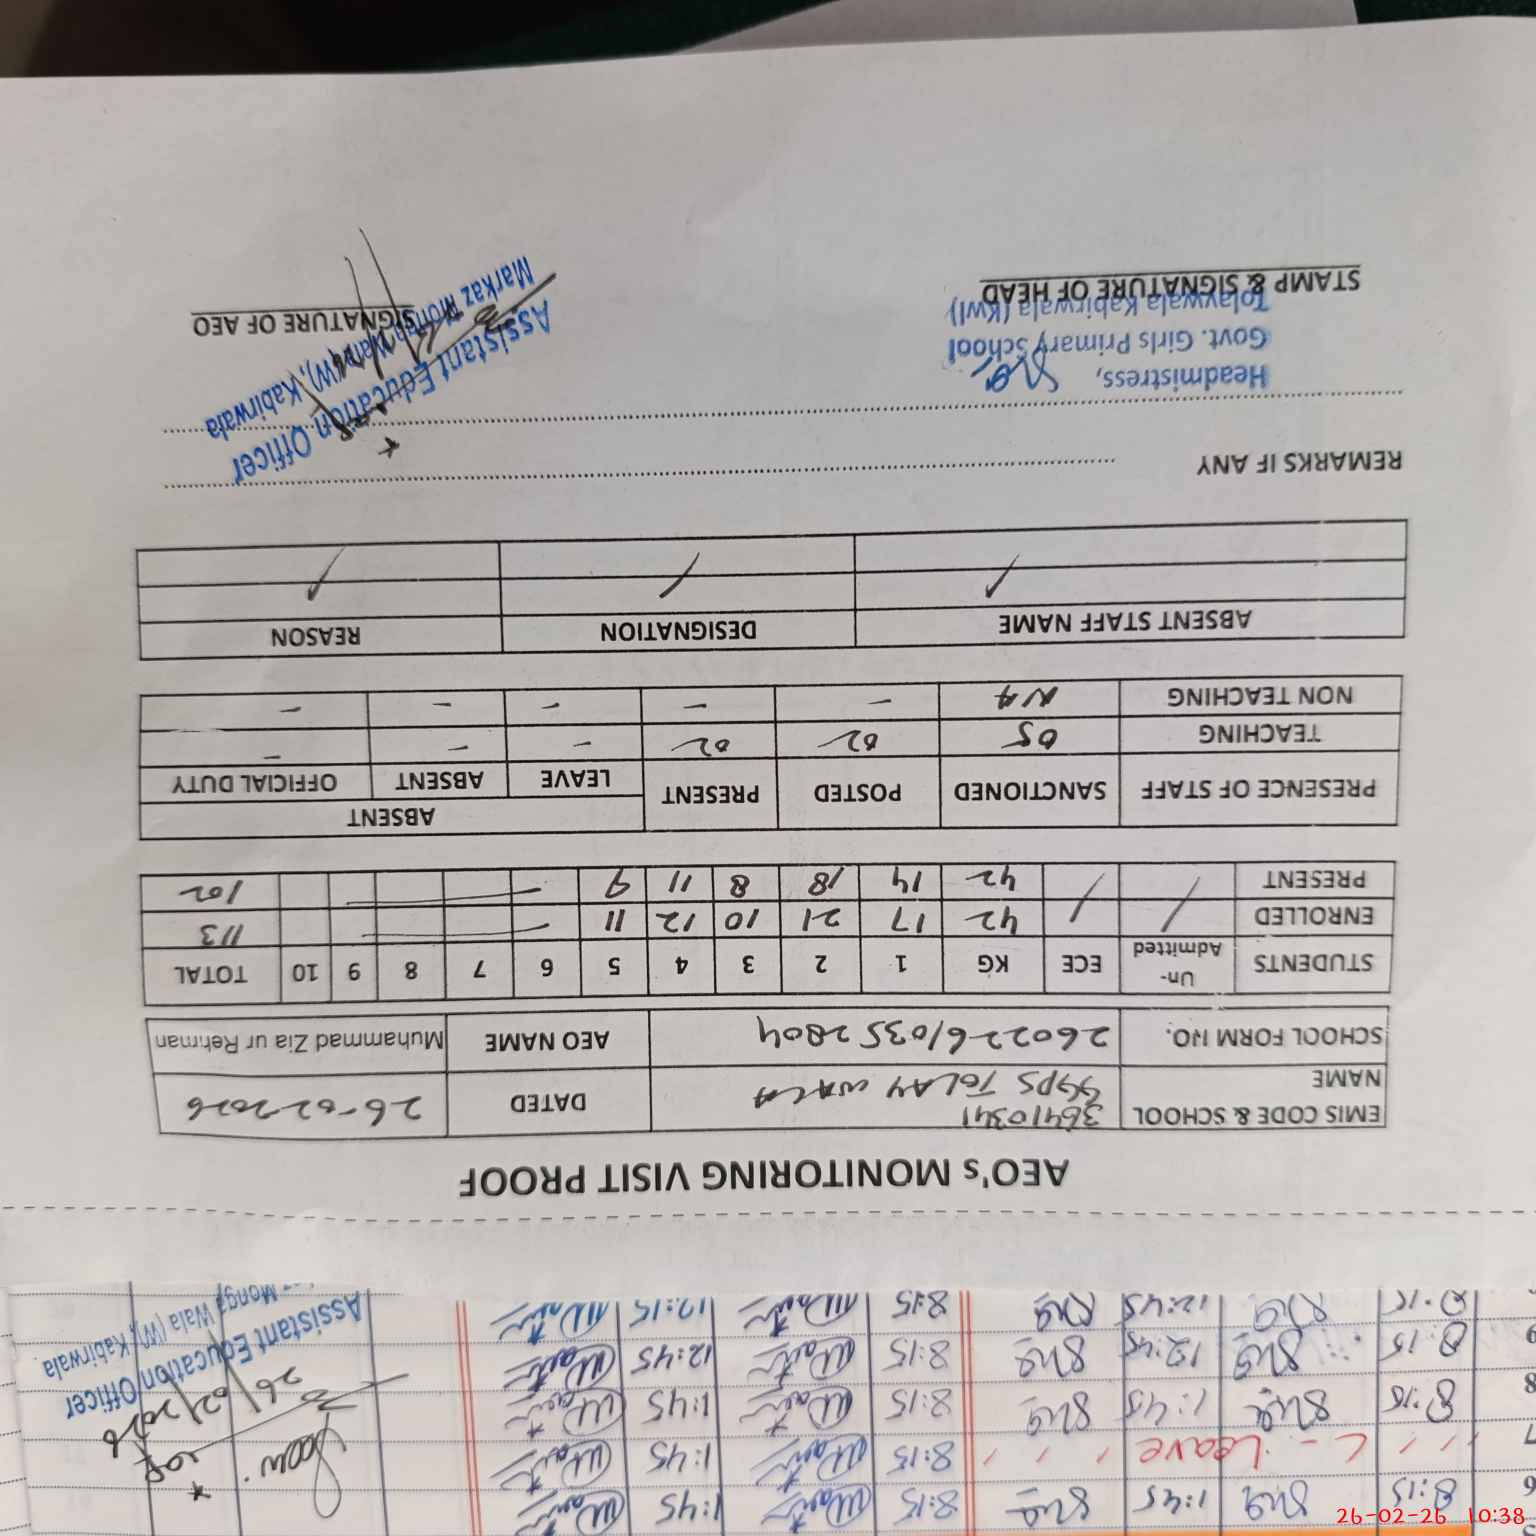 8:15 1:45 8:15 1:45
7 Leave 8:15 1:45
8 8:15 1:45 8:15 1:45
9 8:15 12:45 8:15 12:45
8:15 12:45 8:15 12:15
26/02/2026
Assistant Education Officer
Monga Wala (W), Kabirwala
AEO's MONITORING VISIT PROOF
EMIS CODE & SCHOOL NAME 36410341 GGPS TOLAY WALA DATED 26-02-2026
SCHOOL FORM NO. 26022610352804 AEO NAME Muhammad Zia ur Rehman
STUDENTS Un-Admitted ECE KG 1 2 3 4 5 6 7 8 9 10 TOTAL
ENROLLED / / 42 17 21 10 12 11 - 113
PRESENT / / 42 14 18 8 11 9 - 102
PRESENCE OF STAFF SANCTIONED POSTED PRESENT ABSENT
LEAVE ABSENT OFFICIAL DUTY
TEACHING 05 02 02 - - -
NON TEACHING NA - - - - -
ABSENT STAFF NAME DESIGNATION REASON
/ / /
REMARKS IF ANY
Headmistress,
Govt. Girls Primary School
Tolaywala Kabirwala (Kwl)
STAMP & SIGNATURE OF HEAD
Assistant Education Officer
Markaz Monga Wala (W), Kabirwala
SIGNATURE OF AEO
26-02-26 10:38